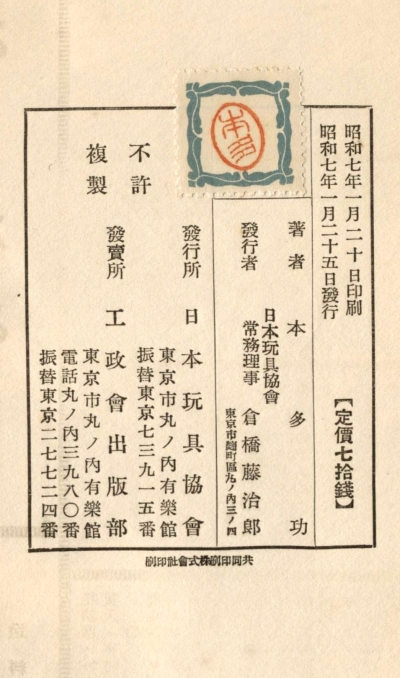 昭和七年一月二十日印刷
昭和七年一月二十五日發行
【定價七拾錢】
著者 本多功
發行者 日本玩具協會 常務理事 倉橋藤治郎
東京市麹町區丸ノ內三ノ四
發行所 日本玩具協會
東京市丸ノ內有樂館
振替東京七三九一五番
發賣所 工政會出版部
東京市丸ノ內有樂館
電話丸ノ內三九八〇番
振替東京二七七二四番
不許
複製
本多
共同印刷株式會社印刷